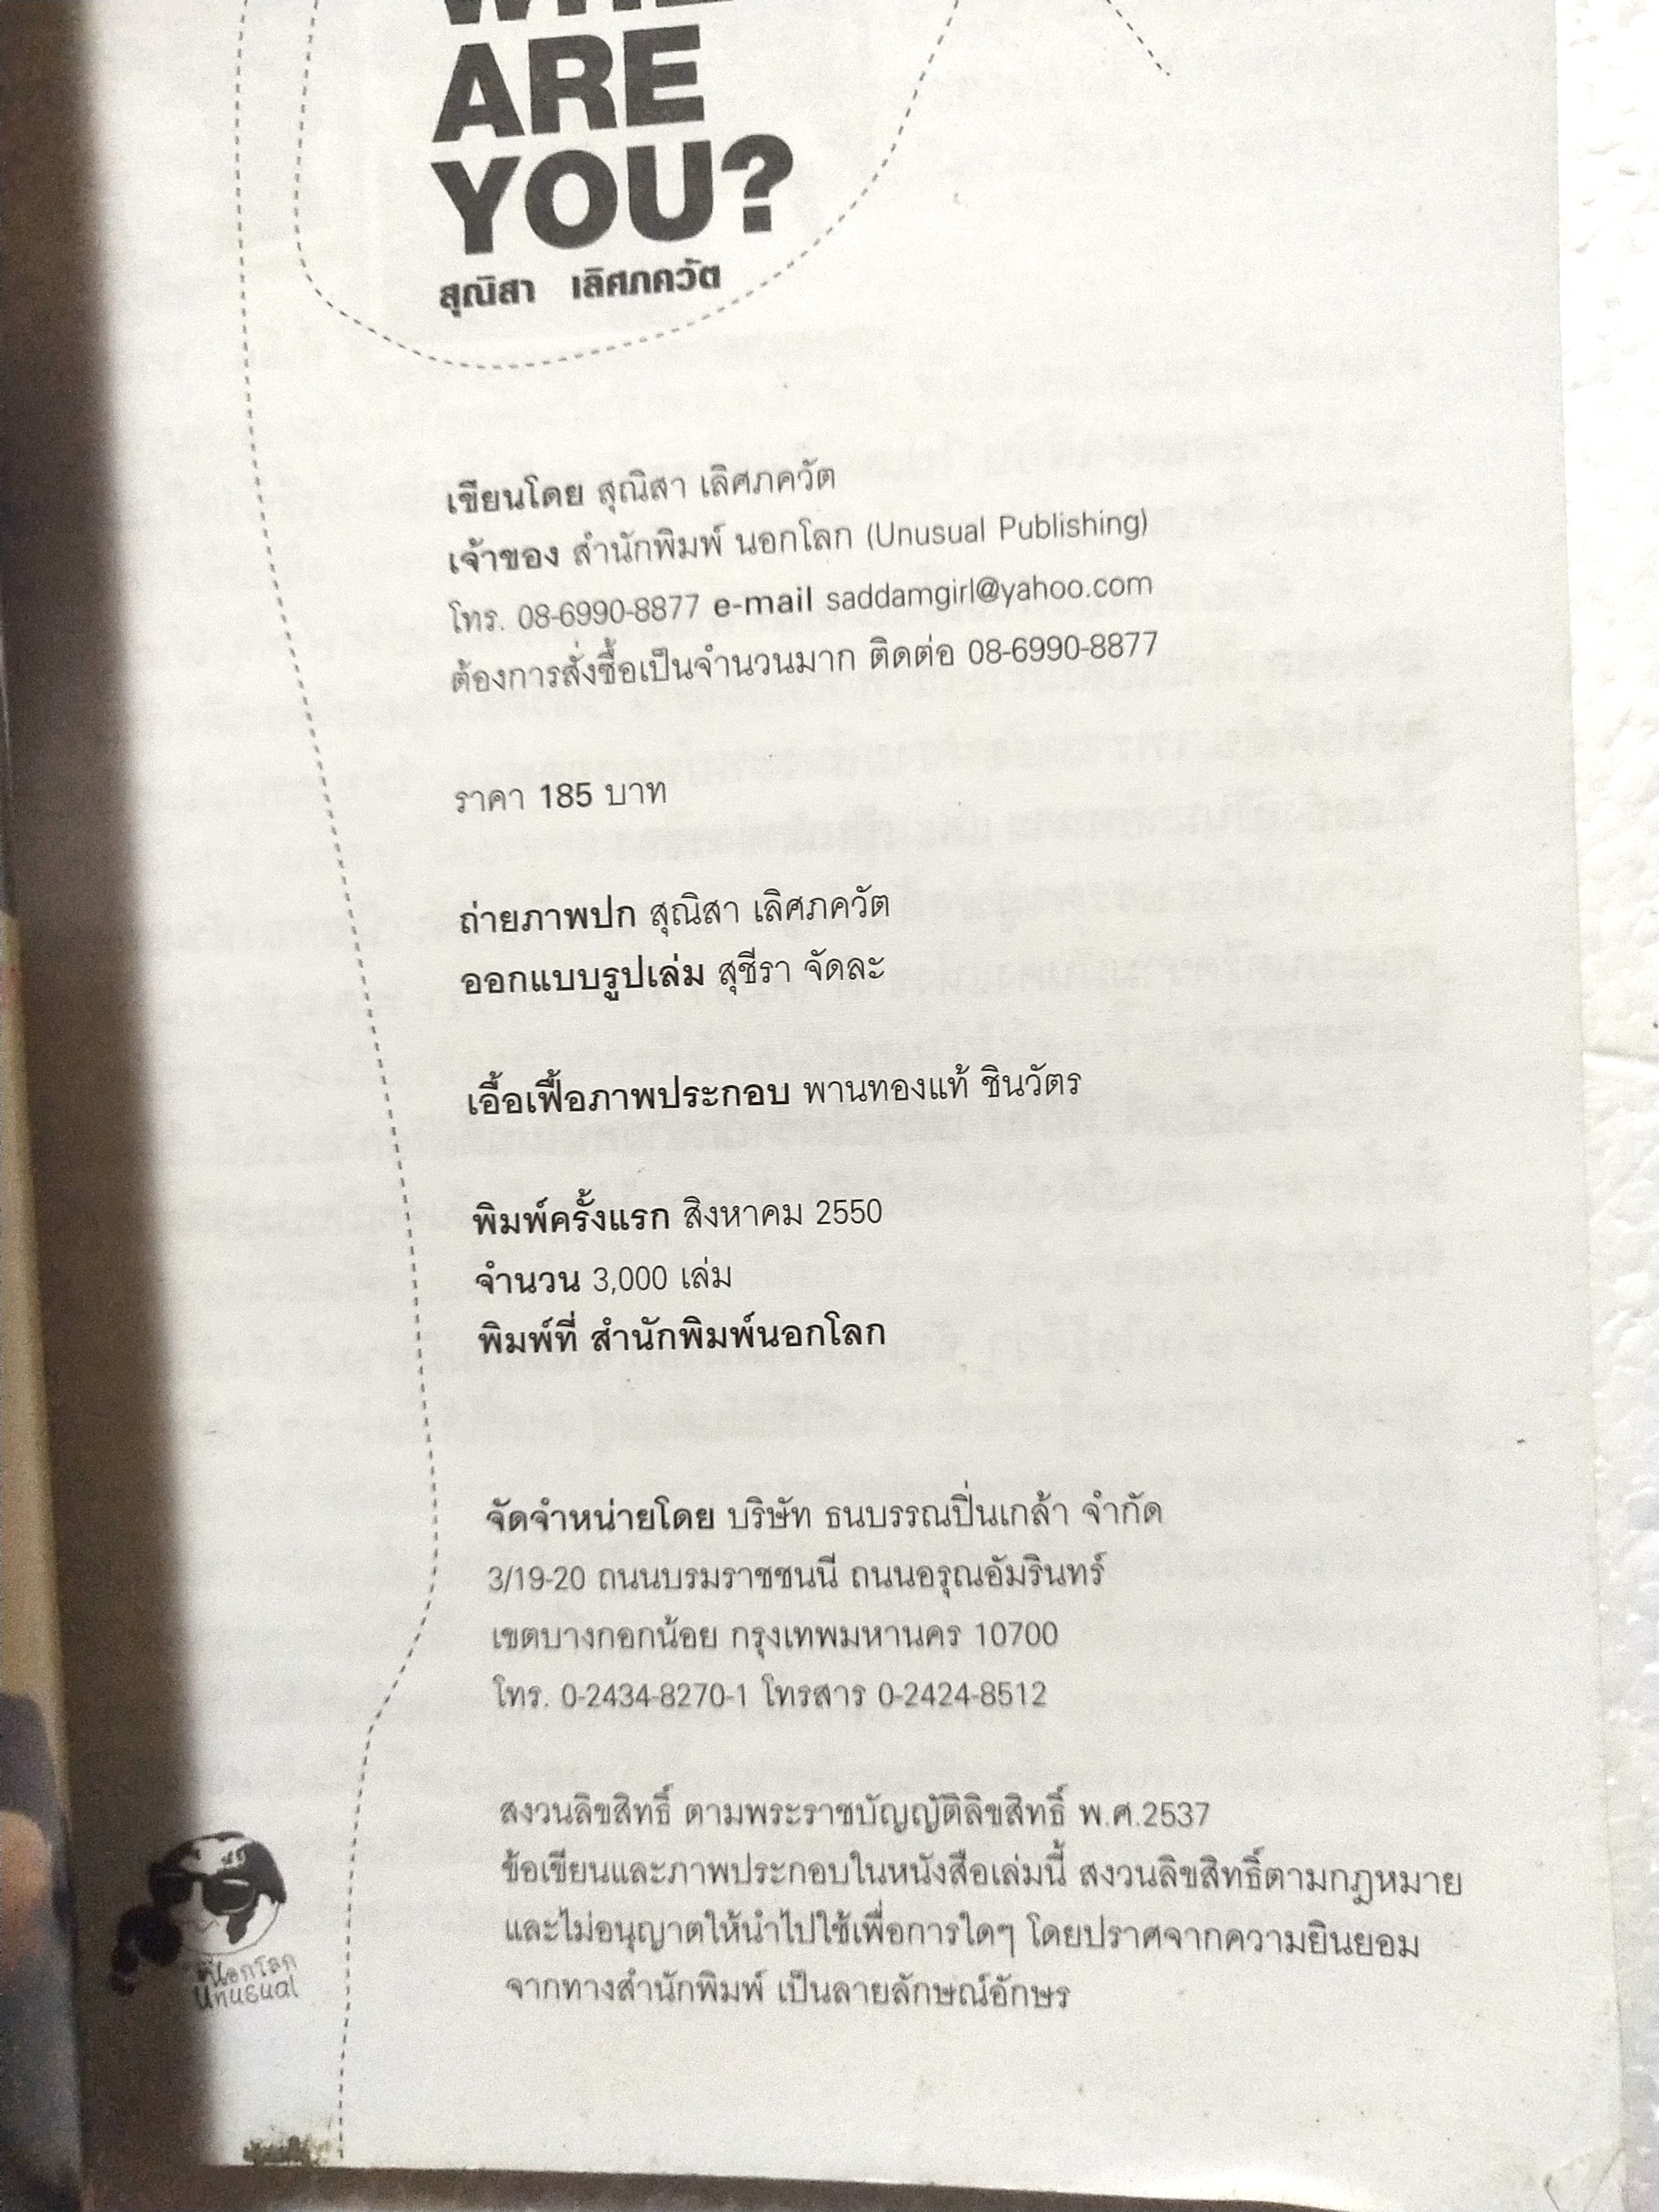 ARE
YOU?
สุณิสา เลิศภควัต
เขียนโดย สุณิสา เลิศภควัต
เจ้าของ สำนักพิมพ์ นอกโลก (Unusual Publishing)
โทร. 08-6990-8877 e-mail saddamgirl@yahoo.com
ต้องการสั่งซื้อเป็นจำนวนมาก ติดต่อ 08-6990-8877
ราคา 185 บาท
ถ่ายภาพปก สุณิสา เลิศภควัต
ออกแบบรูปเล่ม สุชีรา จัดละ
เอื้อเฟื้อภาพประกอบ พานทองแท้ ชินวัตร
พิมพ์ครั้งแรก สิงหาคม 2550
จำนวน 3,000 เล่ม
พิมพ์ที่ สำนักพิมพ์นอกโลก
จัดจำหน่ายโดย บริษัท ธนบรรณปิ่นเกล้า จำกัด
3/19-20 ถนนบรมราชชนนี ถนนอรุณอัมรินทร์
เขตบางกอกน้อย กรุงเทพมหานคร 10700
โทร. 0-2434-8270-1 โทรสาร 0-2424-8512
สงวนลิขสิทธิ์ ตามพระราชบัญญัติลิขสิทธิ์ พ.ศ.2537
ข้อเขียนและภาพประกอบในหนังสือเล่มนี้ สงวนลิขสิทธิ์ตามกฎหมาย
และไม่อนุญาตให้นำไปใช้เพื่อการใดๆ โดยปราศจากความยินยอม
จากทางสำนักพิมพ์ เป็นลายลักษณ์อักษร
นอกโลก
unusual